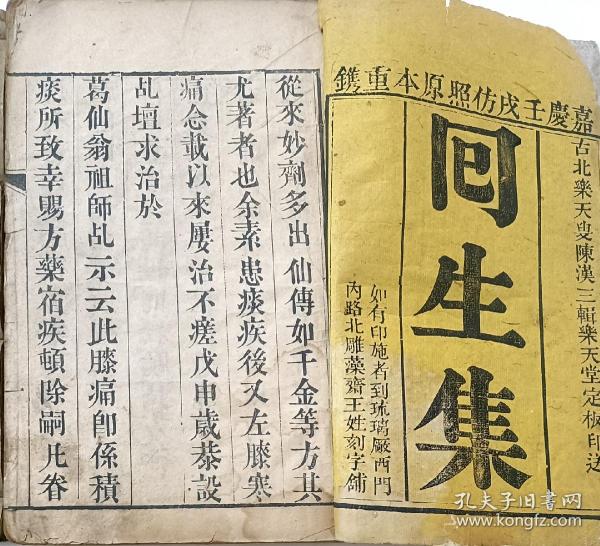 嘉慶壬戌仿照原本重鐫
古北樂天叟陳漢三輯樂天堂定板印送
回生集
如有印施者到琉璃厰西門
內路北雕藻齋王姓刻字舖
從來妙劑多出仙傳如千金等方其
尤著者也余素患痰疾後又左膝寒
痛念載以來屢治不瘥戊申歲恭設
乩壇求治於
葛仙翁祖師乩示云此膝痛卽係積
痰所致幸賜方藥宿疾頓除嗣凡眷
孔夫子旧书网
www.kongfz.com